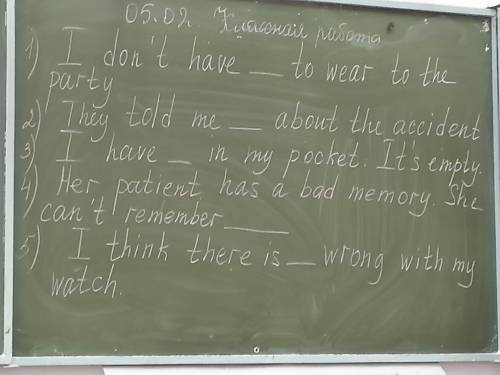 05.02. Классная работа
1) I don't have __ to wear to the
party
2) They told me __ about the accident
3) I have _ in my pocket. It's empty.
4) Her patient has a bad memory. She
can't remember ____
5) I think there is __ wrong with my
watch.